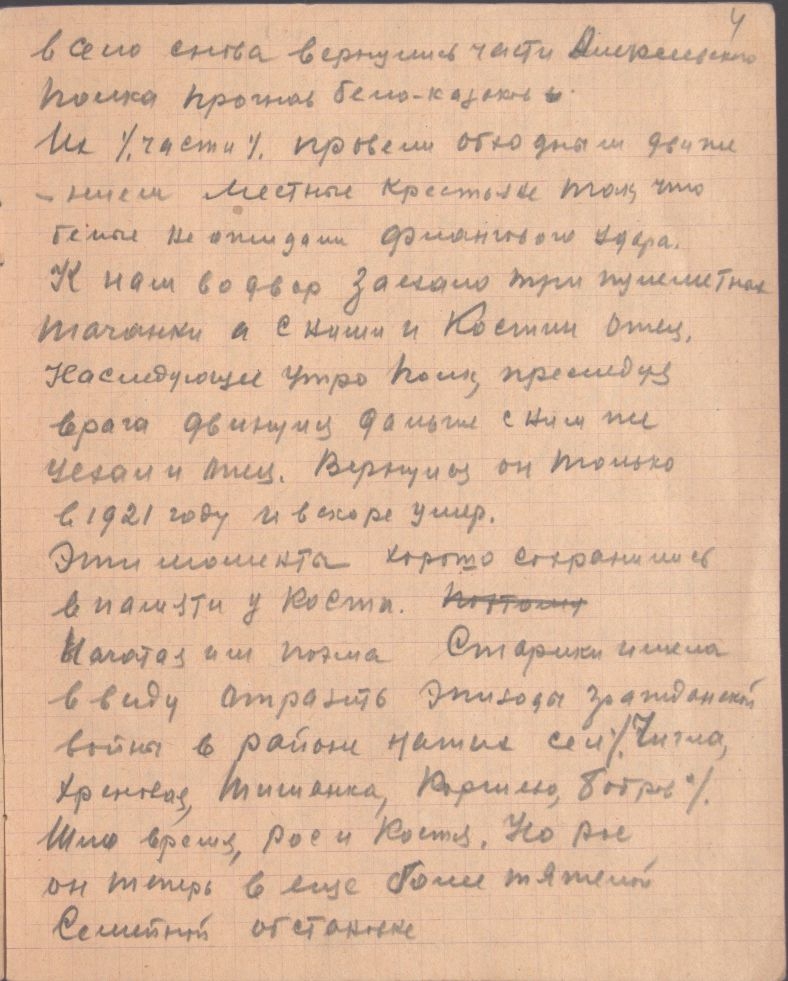 4
в село снова вернулись части
полка прогнав бело-казаков
Их /.части/. провели обходным движе
-нием местные крестьяне так, что
белые не ожидали флангового удара.
К нам во двор заехало три пулеметных
тачанки а с ними и Костин отец.
Наследующее утро полк, преследуя
врага двинулся дальше с ним же
уехал и отец. Вернулся он только
в 1921 году и вскоре умер.
Эти моменты хорошо сохранились
в памяти у Кости. Поэтому
Начатая им поэма Старики имела
ввиду отразить эпизоды гражданской
войны в районе наших сел /.Чигла,
Хреновая, Тишанка, Коршево, Бобров/.
Шло время, рос и Костя. Но рос
он теперь в еще более тяжелой
Семейной обстановке